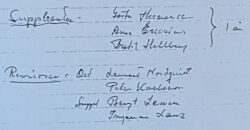 Suppleanter: Gösta Hermance
Arne Ericsius
Bertil Hellberg
} 1 år
Revisorer: Ord Lennart Nordquist
Peter Karlsson
Suppl Bengt Lewen
Ingemar Lans